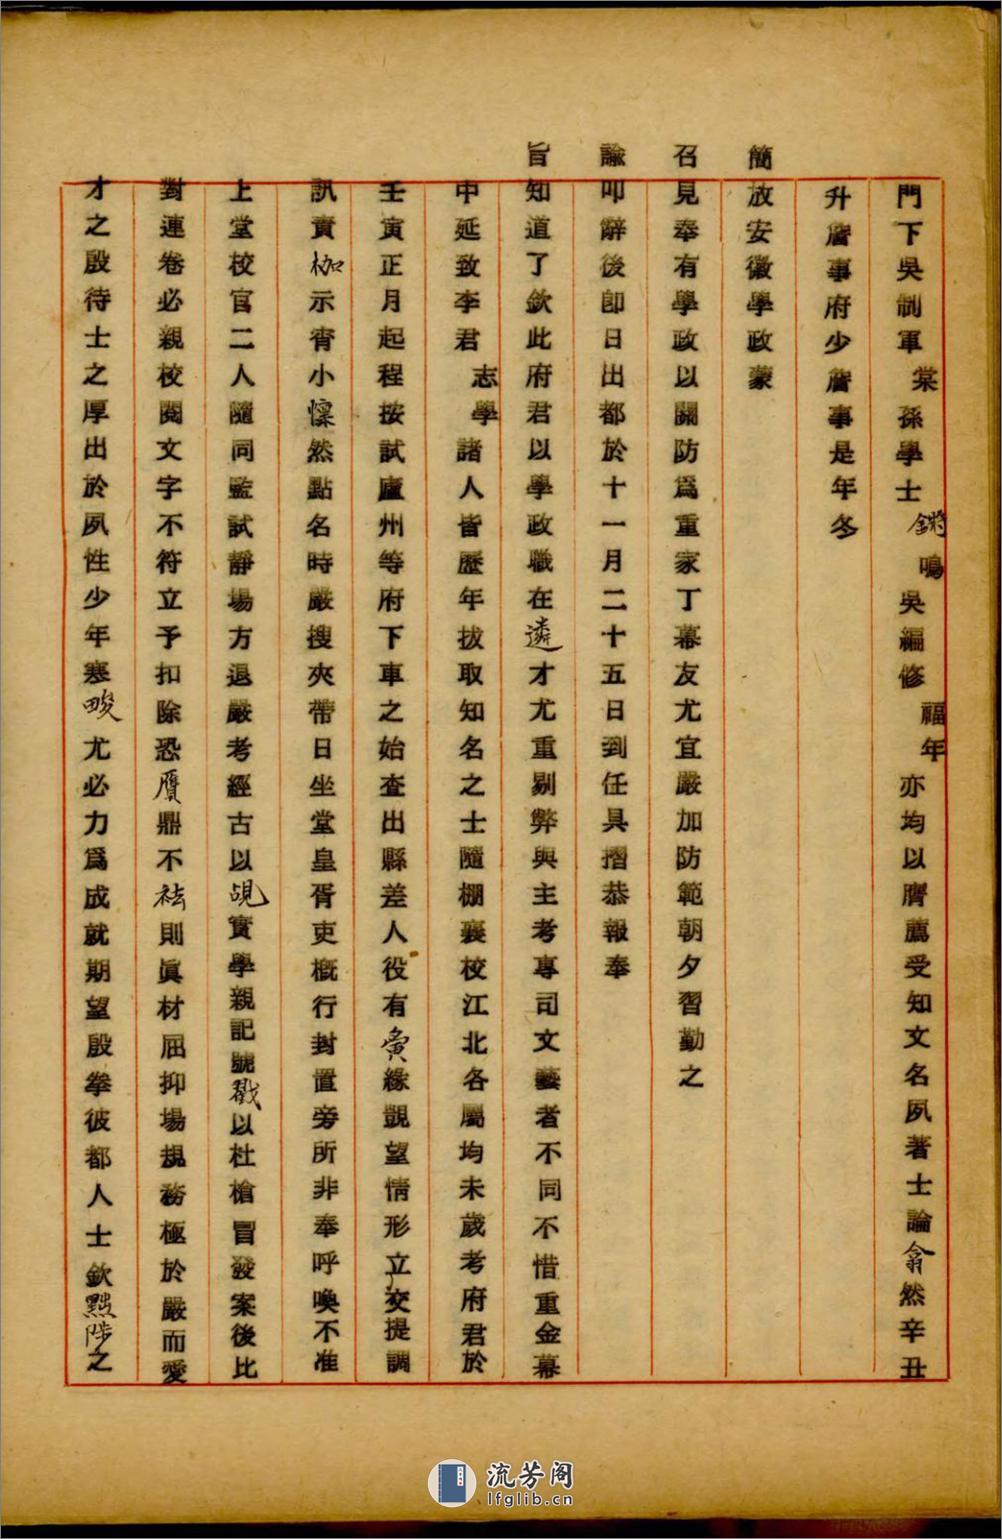 門下吳制軍棠孫學士鏘鳴吳編修福年亦均以膺薦受知文名夙著士論翕然辛丑
升詹事府少詹事是年冬
簡放安徽學政蒙
召見奉有學政以關防爲重家丁幕友尤宜嚴加防範朝夕習勤之
諭叩辭後卽日出都於十一月二十五日到任具摺恭報奉
旨知道了欽此府君以學政職在遴才尤重剔弊與主考專司文藝者不同不惜重金幕
中延致李君志學諸人皆歷年拔取知名之士隨棚襄校江北各屬均未歲考府君於
壬寅正月起程按試廬州等府下車之始查出縣差人役有夤緣覬望情形立交提調
訊責枷示宵小懍然點名時嚴搜夾帶日坐堂皇胥吏概行封置旁所非奉呼喚不准
上堂校官二人隨同監試靜場方退嚴考經古以覘實學親記號戳以杜槍冒發案後比
對連卷必親校閱文字不符立予扣除恐贋鼎不祛則眞材屈抑場規務極於嚴而愛
才之殷待士之厚出於夙性少年寒畯尤必力爲成就期望殷拳彼都人士欽點陟之
流芳阁
lfglib.cn